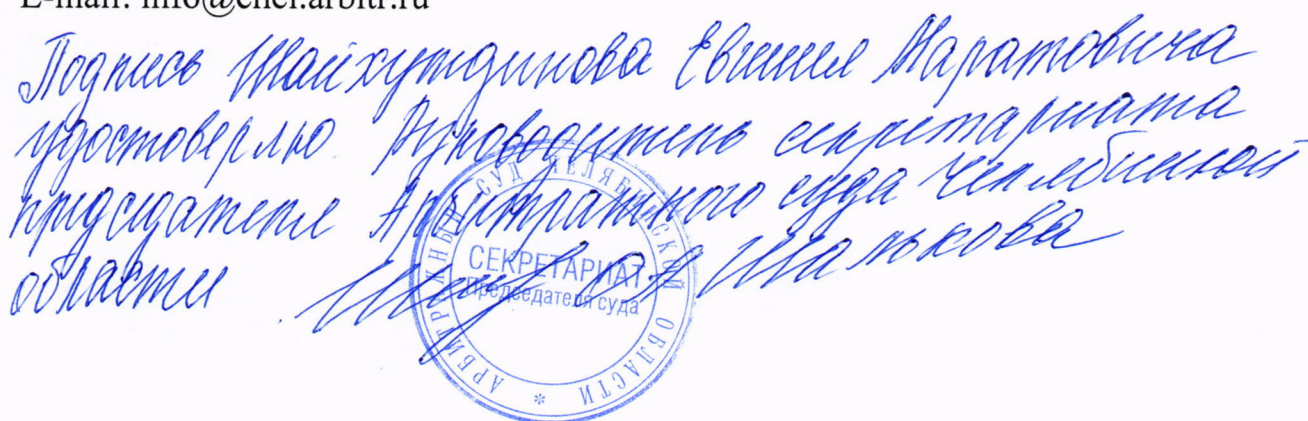 E-mail: info@chel.arbitr.ru
Подпись Шайхутдинова Евгения Маратовича
удостоверяю Руководитель секретариата
председателя Арбитражного суда Челябинской
области Шалькова
АРБИТРАЖНЫЙ СУД ЧЕЛЯБИНСКОЙ ОБЛАСТИ *
СЕКРЕТАРИАТ
Председателя суда